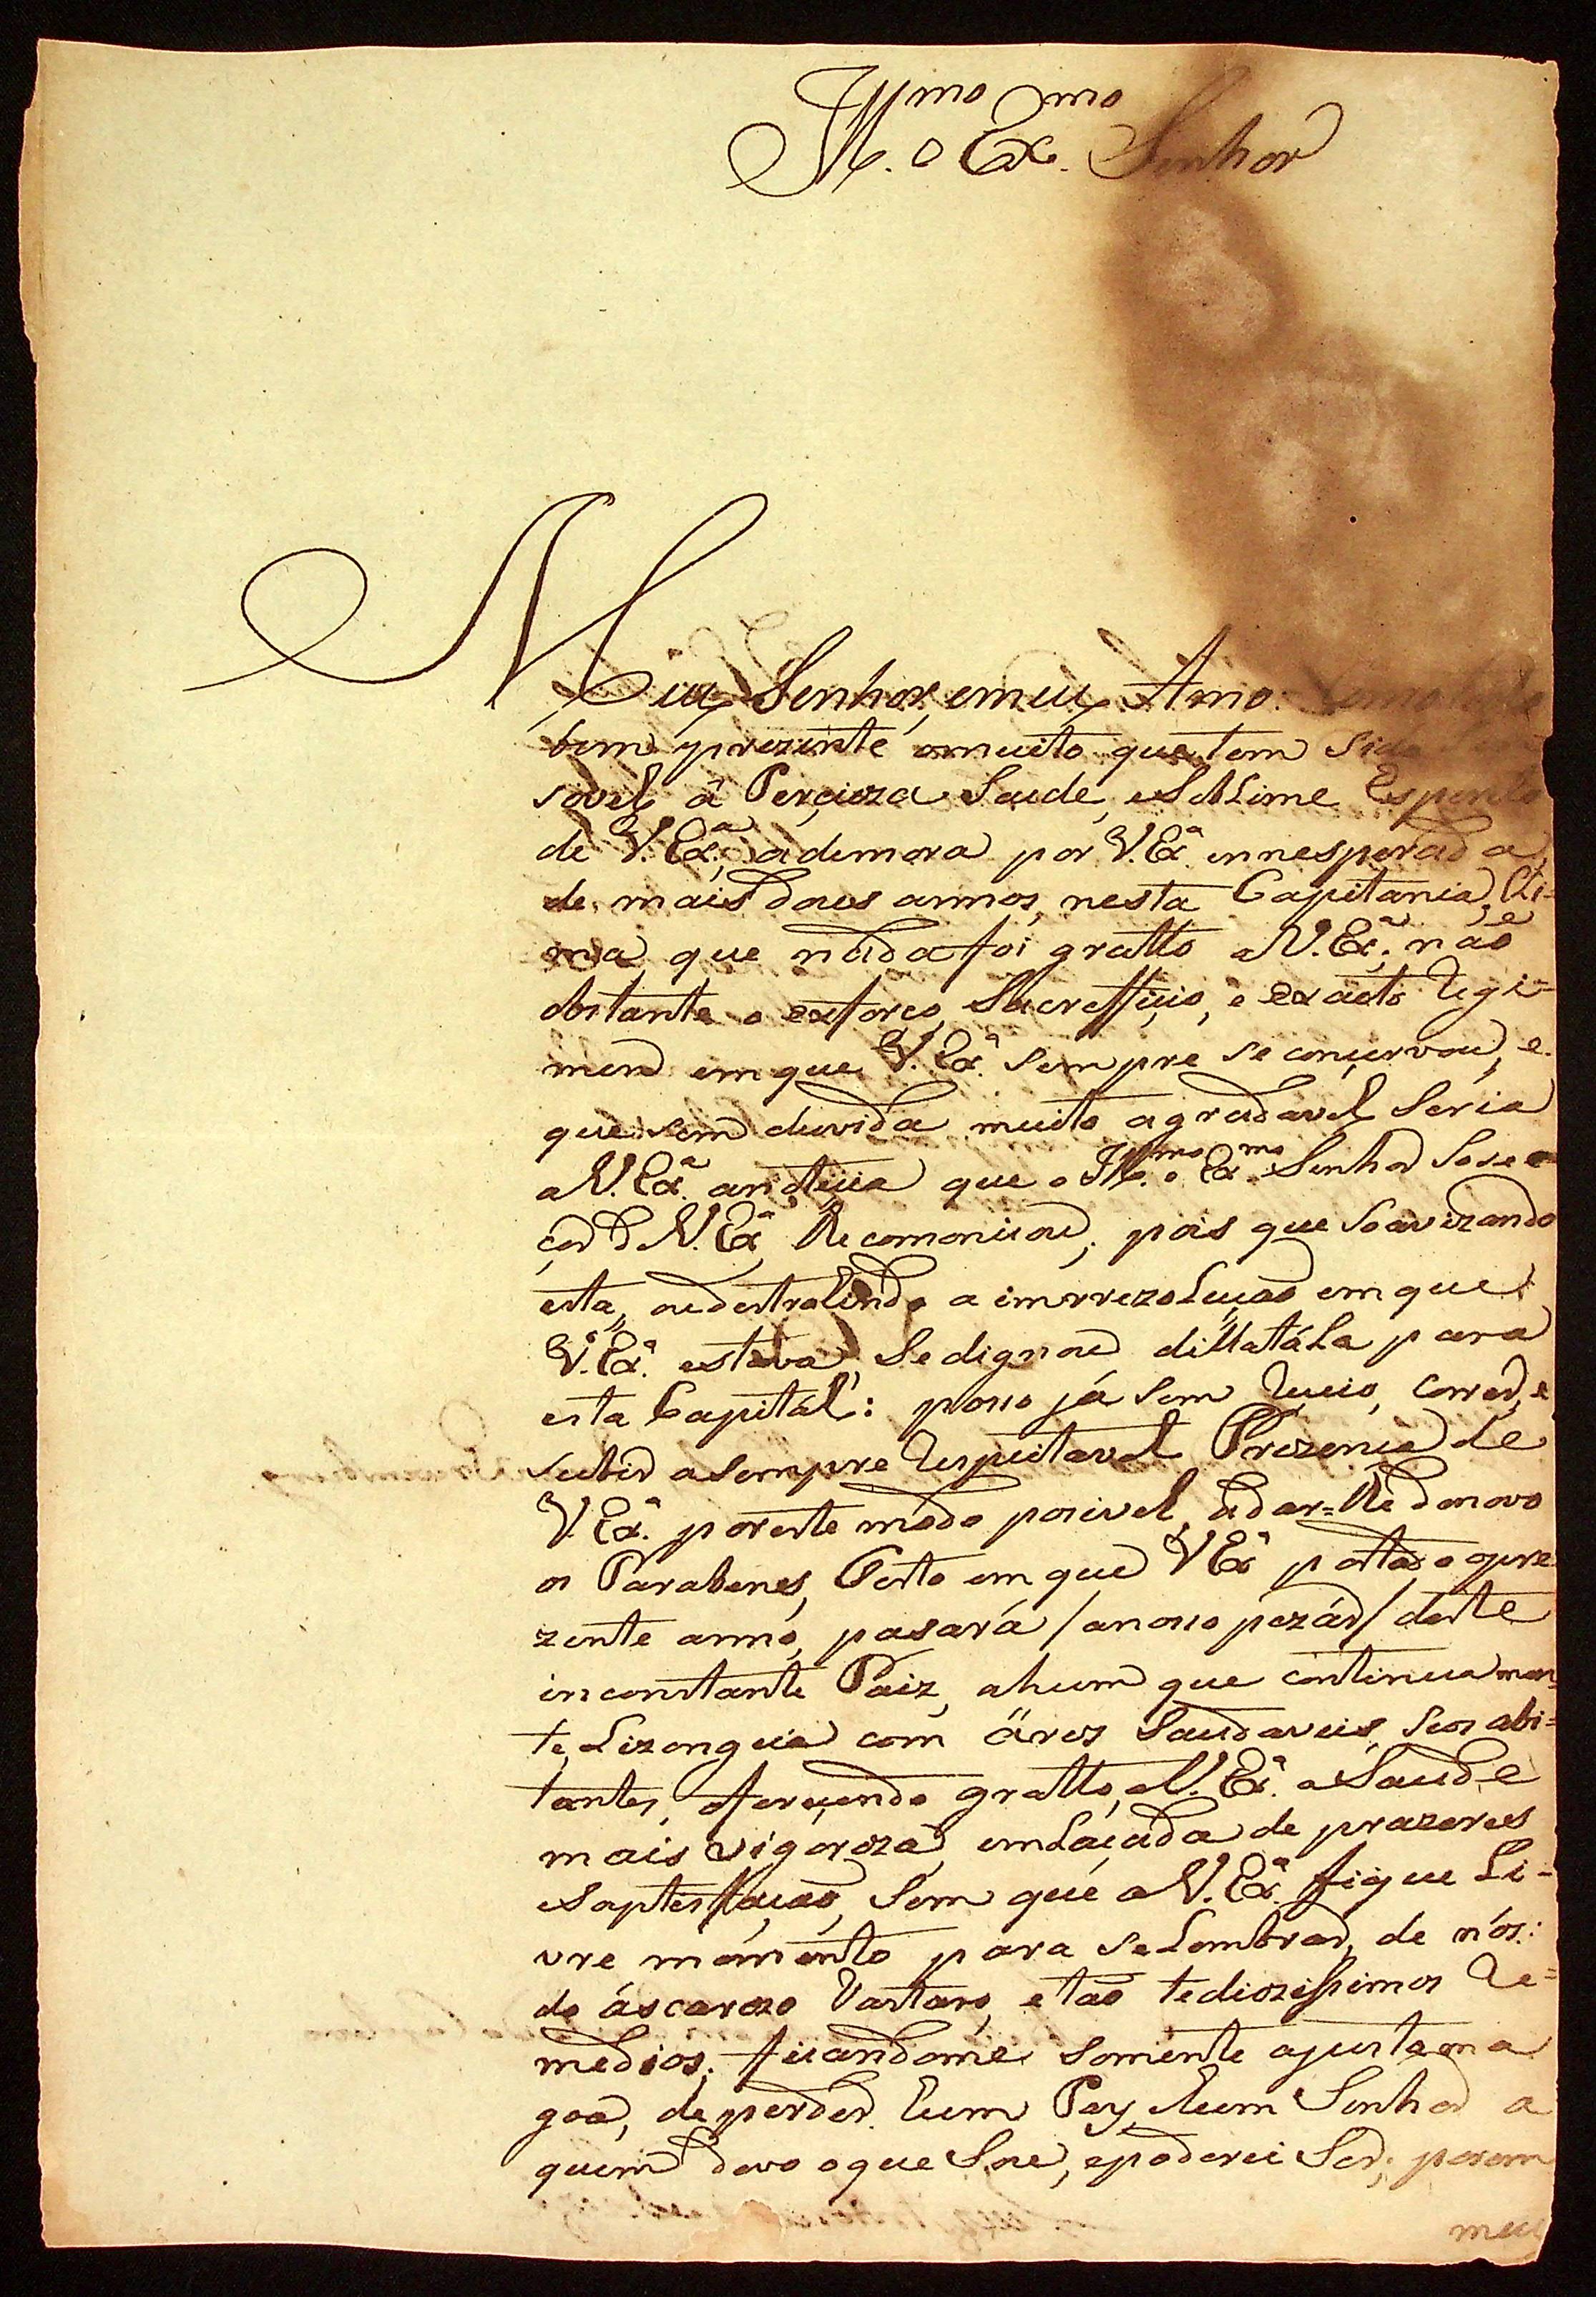 Ill.mo e Ex.mo Senhor
Meu Senhor, emeu Amo:
bem prezente omuito que tem sido
sivel â Perçioza Saude, eSublime Espirito
de V. Ex.ª, ademora por V. Ex.ª innesperada,
de mais dous annos, nesta Capitania, Cli=
ma que nada foi gratto aV. Ex.ª, não
obstante o exforço, Sacreffiçio, e exacto Regi=
men em que V. Ex.ª sempre se conçervou, e
que sem duvida muito agradavel Seria
aV. Ex.ª anotiçia que o Ill.mo e Ex.mo Senhor
V. Ex.ª lhe comonicou; pois que Soavizando
esta, oudestrohindo a imrrezoluçao em que
V. Ex.ª estava, Sedignou dillatála para
esta Capitál: posso já sem Reçeio, Correr, e
subir asempre Respeitavel Prezença de
V. Ex.ª poreste módo posivel, adar=lhe denovo
os Parabenes, Certo em que V Ex.ª
zente anno, pasará /anosso pezár/ deste
inconstante Paiz, ahum que continuamen
te Lizongeia com áres Saudaveis, Seos abi=
tantes, ofereçendo gratto, aV. Ex.ª aSaude
mais vigoroza, emlaçada de prazeres
esaptesfaçao, Sem que aV. Ex.ª fique Li=
vre momento para seLembrar, de nós:
do áscarozo Vastaro, etaõ tediozissimos Re=
medios; ficandome somente ajustama
goa, de perder hum Pay, ehum Senhor a
quem devo oque Sou, epoderei Ser; porem
meu